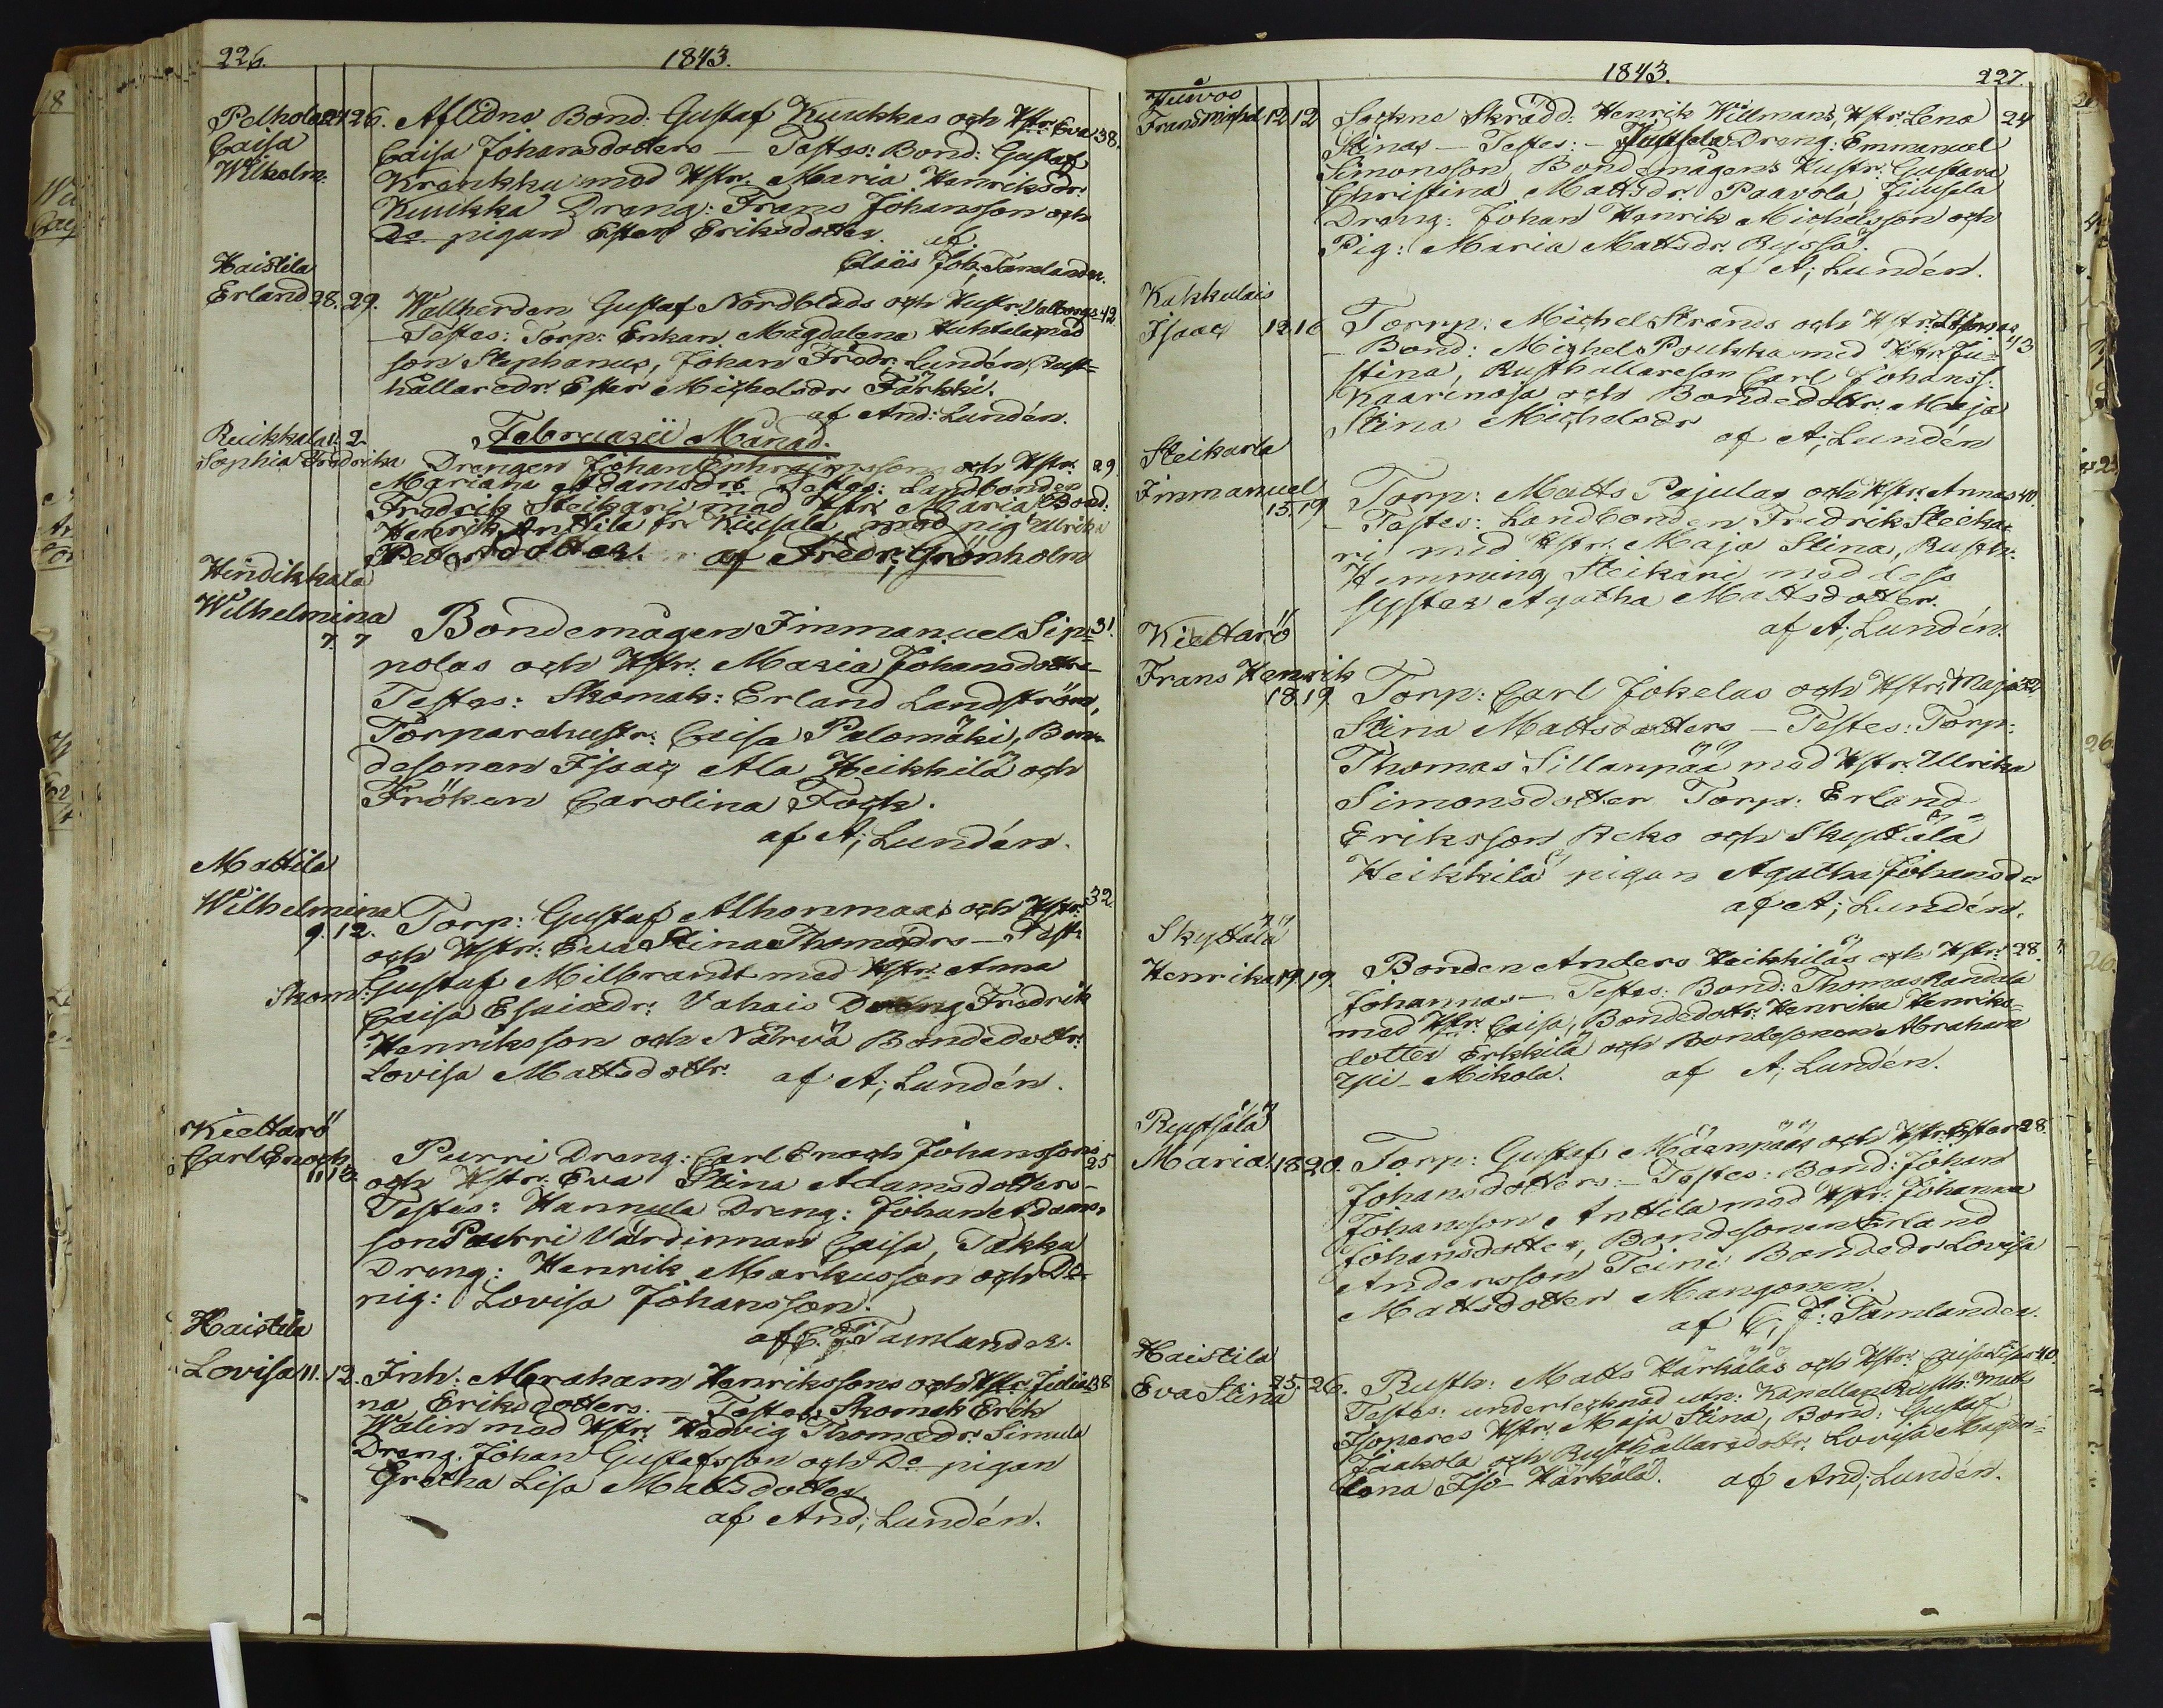 226. 1843.
Polhola 24 26. Aflidne Bond: Gustaf Kuukkas och Hstr: Eva 38.
Caisa Caisa Johansdotters — Testes: Bond: Gustaf
Wilhelm. Krankku med Hstr. Maria Henriksdr.
Kuukka Dreng: Frans Johansson och
Do pigan Ester Eriksdotter. af.
Claës Joh; Tamlander.
Haistila
Erland 28. 29. Wallherden Gustaf Nordblads och Hustr: Valborgs 42
— Testes: Torp: Enkan Magdalena Huhtala med
son Stephanus, Johan Fredr. Lundén, Rust-
hållaredr. Ester Michelsdr Färkki.
af And: Lundén.
Ruikkala 1. 2. Februarii Månad.
Sophia Fredrika Drengen Johan Ephraimssons och Hstr. 29
Mariana Adamsdrs Testes: Landbonden
Fredrik Steikari med Hstr Maria Bond:
Henrik Anttila fr. Kiusala med pig. Ulrika
Petersdotter. af Fredr; Grönholm
Hindikkala
Wilhelmina
7. 7 Bondemågen Immanuel Sip- 31.
polas och Hstr. Maria Johansdottrs —
Testes: Skomak: Erland Landström,
Torparehustr: Caisa Palomäki, Bon-
desonen Isaac Ala Heikkilä och
Fröken Carolina Fock.
af A; Lundén.
Mattila
Wilhelmina Torp: Gustaf Alhonmaas och Hstr: 32
9. 12. och Hstr: Eva Stina Thomædrs — Test:
Skom: Gustaf Milbrandt med Hstr. Anna
Caisa Esaiædr: Vahais Dreng Fredrik
Henriksson och Närvä Bondedottr:
Lovisa Mattsdottr. af A; Lundén.
Kieltarö
Carl Enoch Purri Dreng: Carl Enoch Johanssons 25
11 12. och Hstr. Eva Stina Adamsdotters —
Testes: Hannula Dreng: Johan Adams-
son Purri Värdinnan Caisa, Takku
Dreng: Henrik Markusson och Do
pig: Lovisa Johansson.
af C. J: Tamlander.
Haistila
Lovisa 11. 12. Inh: Abraham Henrikssons och Hstr. Julia- 38
na Eriksdotters. — Testes Skomak Erik
Walin med Hstr. Hedvig Thomædr. Simula
Dreng. Johan Gustafsson och Do pigan
Gretha Lisa Mattsdotter.
af And; Lundén.
1843. 227.
Frans Michel 12 12 Sockne Skrädd: Henrik Willmans, Hstr. Lena 24
Stinas — Testes: — Juusela Dreng: Emmanuel
Simonsson, Bondemågens Hustr. Gustava
Christina Mattsdr. Paavola, Juusela
Dreng: Johan Henrik Michelsson och
Pig: Maria Mattsdr. Ryssä.
af A; Lundén.
Kakkulais
Isaac 12 16 Torrp: Michel Strands och Hstr.
— Bond: Michel Poukka med Hstr. Ju- 43
stina, Rusthallareson Carl Johanss:
Kaarinoja och Bondedottr. Maja
Stina Michelsdr
af A; Lundén
Steikarla
Immanuel
15. 19 Torp: Matts Pajulas och Hstr: Annas 40.
— Testes: Landbonden Fredrik Steika-
ri med Hstr. Maja Stina, Rusth:
Hemming Steikari med dess
syster Agatha Mattsdotter.
af A; Lundén.
Kieltarö
Frans Henrik
18. 19. Torp: Carl Jokelas och Hstr: Maja 32.
Stina Mattsdotters — Testes: Torp:
Thomas Sillanpää med Hstr. Ulrika
Simonsdotter Torp: Erland
Eriksson Reko och Skyttälä
Heikkilä pigan Agatha Johansdr
af A; Lundén.
Skyttälä
Henrika 19. 19. Bonden Anders Heikkiläs och Hstr: 28.
Johannas — Testes: Bond: Thomas Randala
med Hstr. Caisa, Bondedottr. Henrika Henriks-
dotter Erkkilä och Bondesonen Abraham
Ypi-Mikola. af A; Lundén.
Ruotsälä
Maria. 18 20. Torp: Gustaf Mäenpääs och Hstr. Ester 28.
Johansdotters: — Testes: Bond: Johan
Johansson Anttila med Hstr: Johanna
Johansdotter, Bondesonen Erland
Andersson Teini Bondedr Lovisa
Mattsdotter Mangonen.
af C; J: Tamlander.
Haistila
Eva Stina 25. 26. Rusth: Matts Härkäläs och Hstr. Caisa Lisas 40.
Testes: undertecknad utn: Kapellan Rusth: Matts
Isonares Hstr. Maja Stina, Bond: Gustaf
Jaakola och Rusthållaredottr. Lovisa Magda-
lena Iso-Härkälä. af And; Lundén.